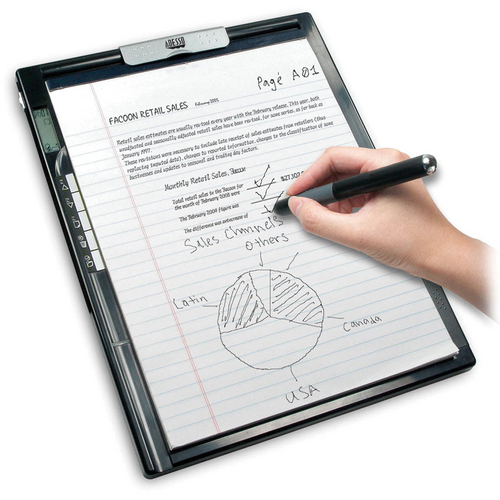 ADESSO
Pagé A01
FACOON RETAIL SALES February 2005
Retail sales estimates are usually revised every year with the February release. This year, both
unadjusted and seasonally adjusted retail sales have been revised, for some series, as far back as
January 1997.
These revisions were necessary to include late receipt of sales estimates from retailers (thus
replacing imputed data), changes to reported information, changes to the classification of some
businesses and updates to seasonal and trading day factors.
Monthly Retail Sales,
Total retail sales in the Facoon for
the month of February 2005 were
The February 2004 figure was
The difference was an increase of
Sales Channels
Others
Latin
Canada
USA